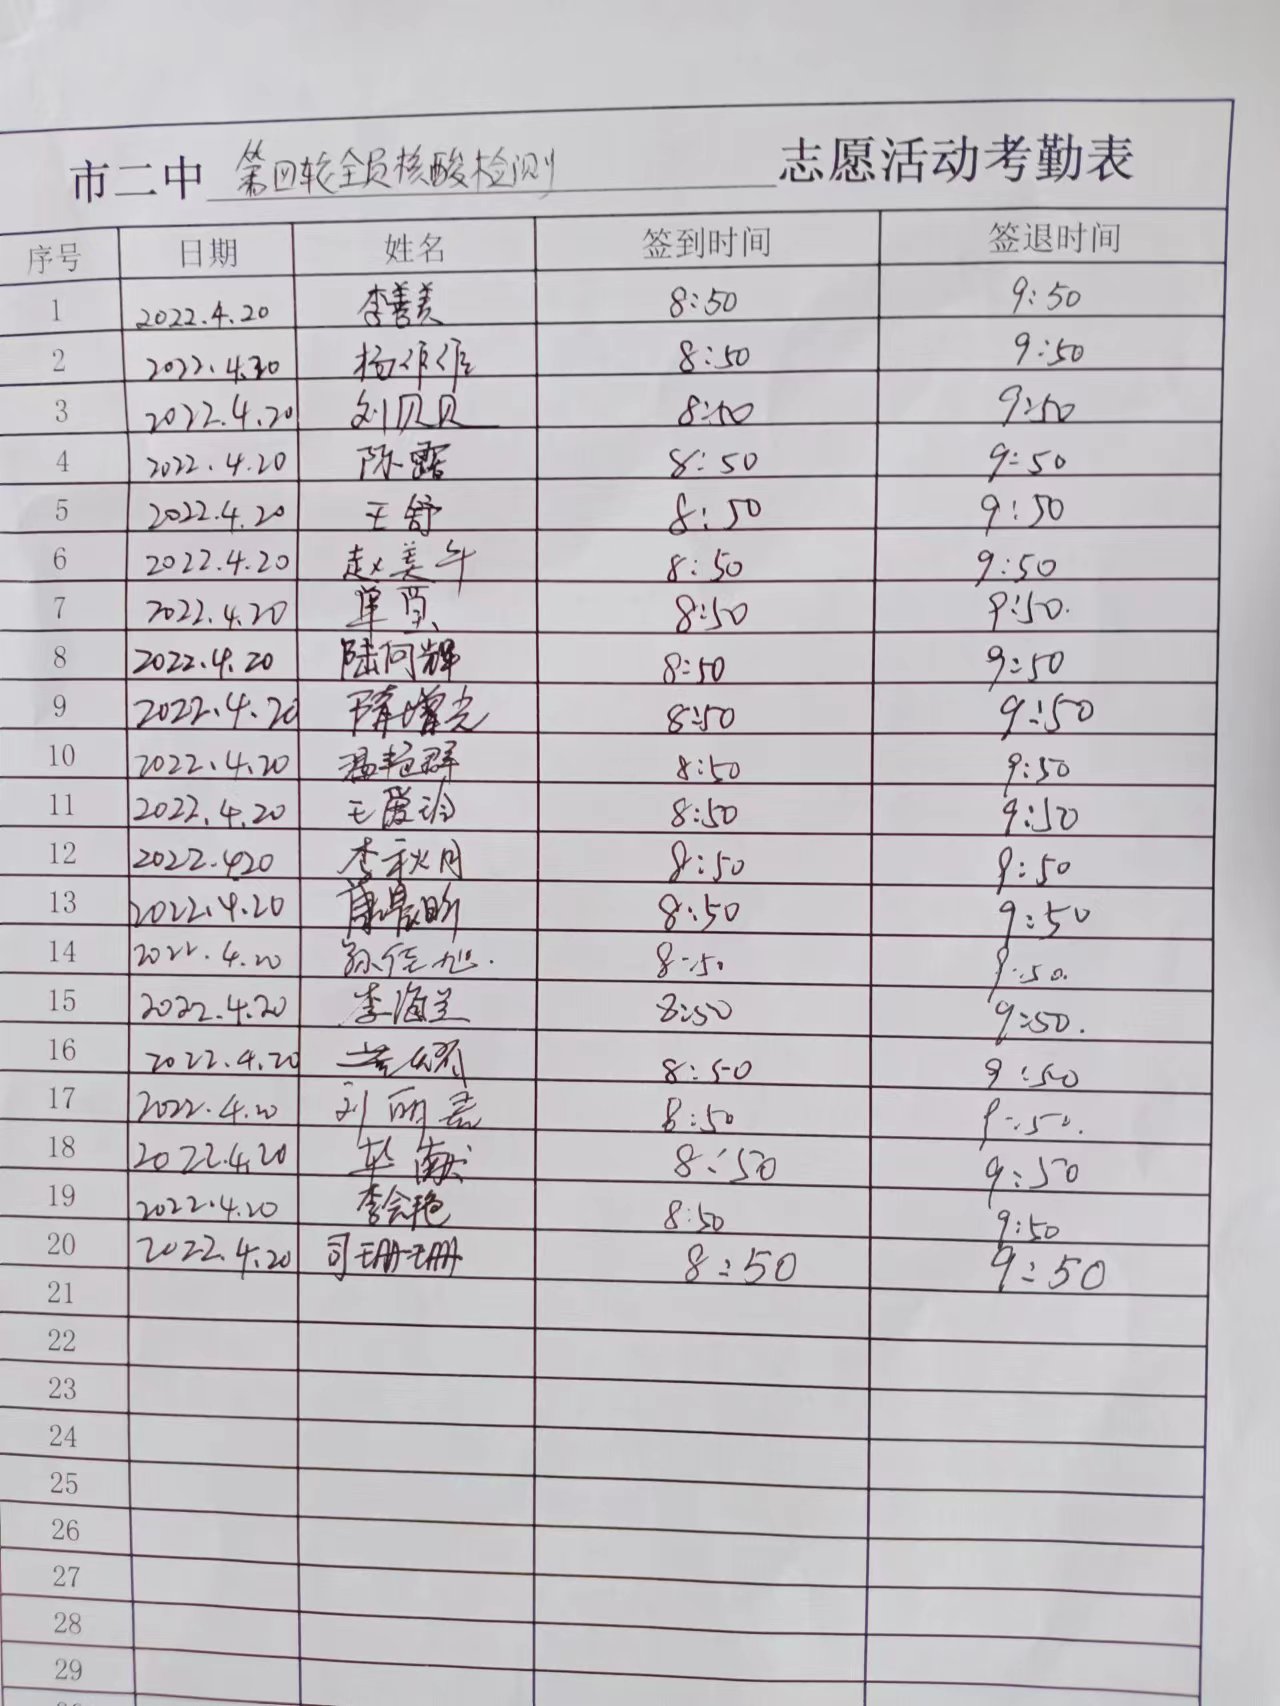 市二中 第四轮全员核酸检测 志愿活动考勤表
序号 日期 姓名 签到时间 签退时间
1 2022.4.20 李善美 8:50 9:50
2 2022.4.20 杨作作 8:50 9:50
3 2022.4.20 刘贝贝 8:50 9:50
4 2022.4.20 陈露 8:50 9:50
5 2022.4.20 王舒 8:50 9:50
6 2022.4.20 赵美午 8:50 9:50
7 2022.4.20 单 8:50 9:50.
8 2022.4.20 陆向辉 8:50 9:50
9 2022.4.20 隋增光 8:50 9:50
10 2022.4.20 温艳群 8:50 9:50
11 2022.4.20 王爱玲 8:50 9:50
12 2022.4.20 李秋月 8:50 9:50
13 2022.4.20 8:50 9:50
14 2022.4.20 孙佳旭. 8:50 9:50.
15 2022.4.20 李海兰 8:50 9:50.
16 2022.4.20 8:50 9:50
17 2022.4.20 刘丽 8:50 9:50.
18 2022.4.20 8:50 9:50
19 2022.4.20 李会艳 8:50 9:50
20 2022.4.20 司珊珊 8:50 9:50
21
22
23
24
25
26
27
28
29